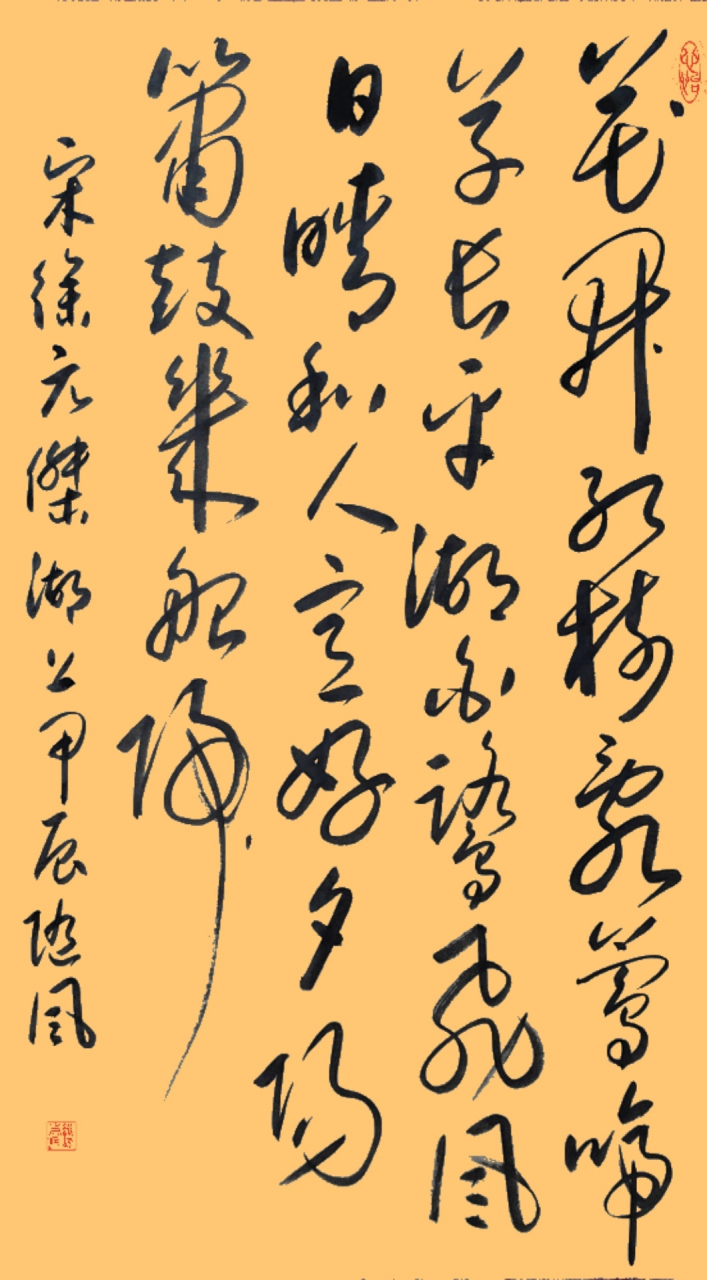 花開紅樹亂鶯啼
草長平湖白鷺飛風
日晴和人意好夕陽
簫鼓幾船歸
宋徐元傑湖上甲辰隨風